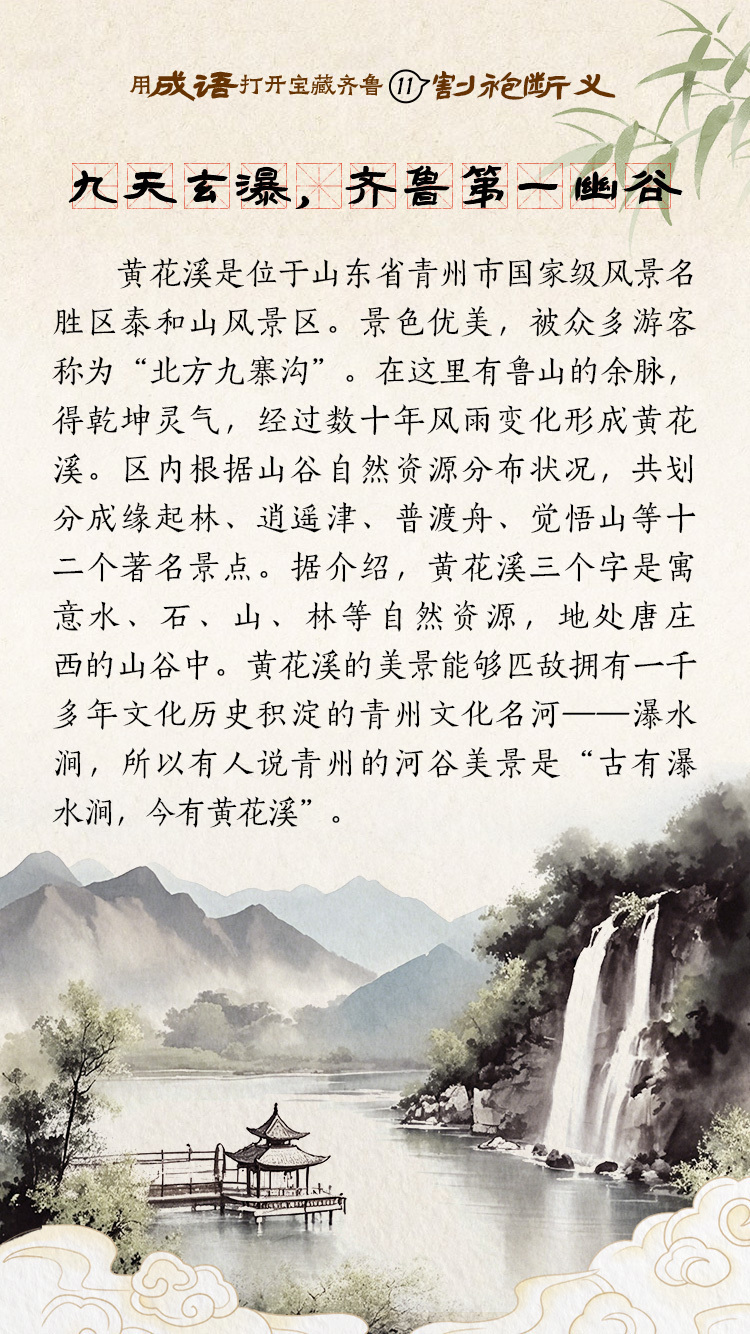 用成语打开宝藏齐鲁⑪割袍断义
九天玄瀑，齐鲁第一幽谷
黄花溪是位于山东省青州市国家级风景名
胜区泰和山风景区。景色优美，被众多游客
称为“北方九寨沟”。在这里有鲁山的余脉，
得乾坤灵气，经过数十年风雨变化形成黄花
溪。区内根据山谷自然资源分布状况，共划
分成缘起林、逍遥津、普渡舟、觉悟山等十
二个著名景点。据介绍，黄花溪三个字是寓
意水、石、山、林等自然资源，地处唐庄
西的山谷中。黄花溪的美景能够匹敌拥有一千
多年文化历史积淀的青州文化名河——瀑水
涧，所以有人说青州的河谷美景是“古有瀑
水涧，今有黄花溪”。